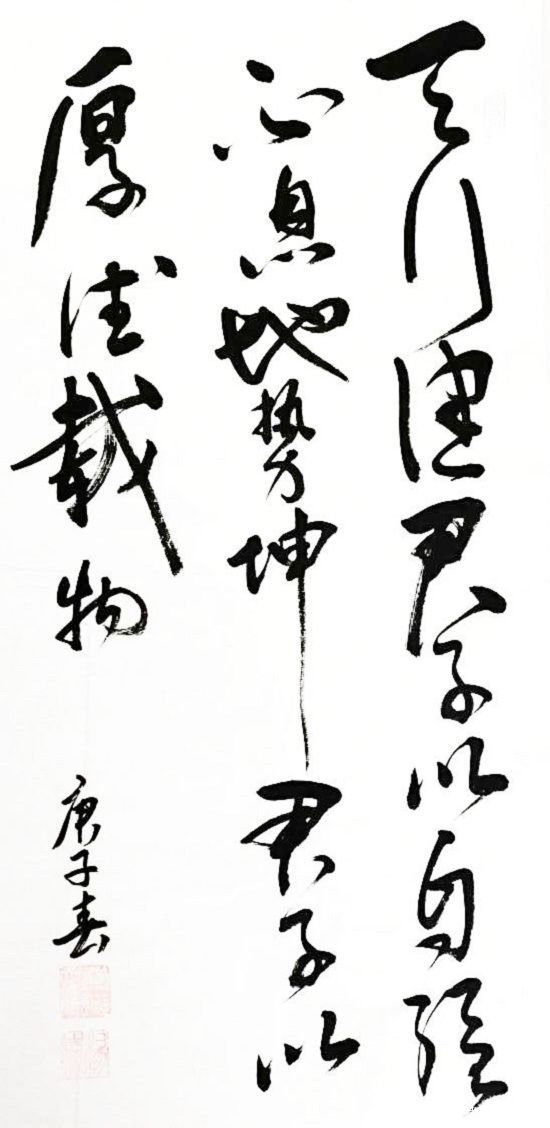 天行健君子以自强
不息地势坤君子以
厚德载物
庚子春